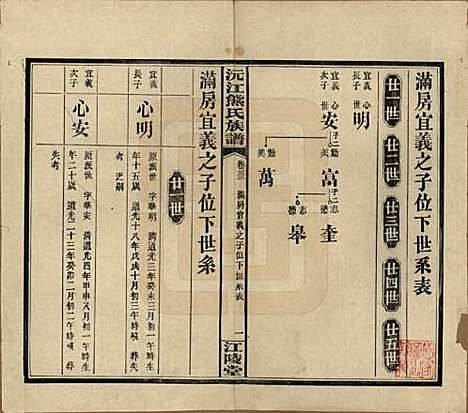 滿房宜義之子位下世系表
廿一世
廿二世
廿三世
廿四世
廿五世
宜義長子 心明
宜義次子 心安
子二 勤美 富
勤美 萬
子二 志德 奎
志德 皋
沅江熊氏族譜
滿房宜義之子位下世系表
一
江陵堂
滿房宜義之子位下世系
廿一世
宜義長子
心明
原派世 字華明 清道光三年癸未三月初一午時生
年十五歲 道光十八年戊戌十月初三午時歿 葬失
考 乏嗣
宜義次子
心安
原派世 字華安 清道光四年甲申八月初一午時生
年二十歲 道光二十三年癸卯二月初二午時歿 葬
失考